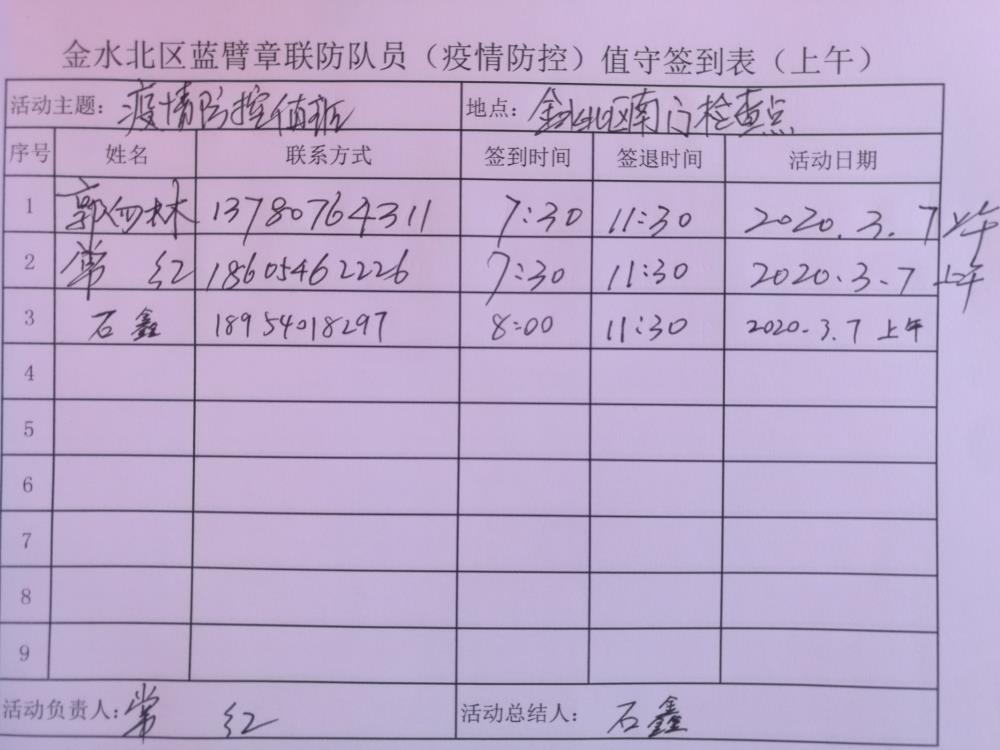 金水北区蓝臂章联防队员（疫情防控）值守签到表（上午）
活动主题：疫情防控值班 地点：金水北区南门检查点
序号 姓名 联系方式 签到时间 签退时间 活动日期
1 郭 林 13780764311 7:30 11:30 2020.3.7 上午
2 常红 18605462226 7:30 11:30 2020.3.7 上午
3 石鑫 18954018297 8:00 11:30 2020.3.7 上午
4
5
6
7
8
9
活动负责人：常红 活动总结人：石鑫